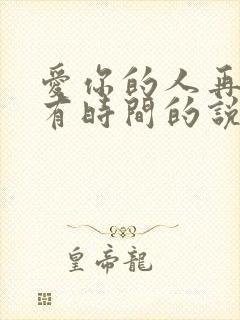 愛你的人再
有時間的說
皇帝龍